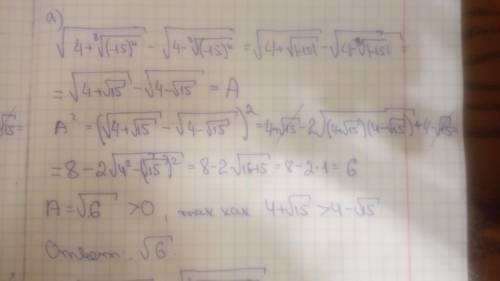 а)
√(4+⁸√(-15)⁴) - √(4-⁸√(-15)⁴) = √(4+√|-15|) - √(4-√|-15|) =
= √(4+√15) - √(4-√15) = A
A² = (√(4+√15) - √(4-√15))² = 4+√15 - 2√((4+√15)(4-√15)) + 4-√15 =
= 8-2√(4²-(√15)²) = 8-2·√(16-15) = 8-2·1 = 6
A = √6 >0, так как 4+√15 > 4-√15
Ответ: √6.